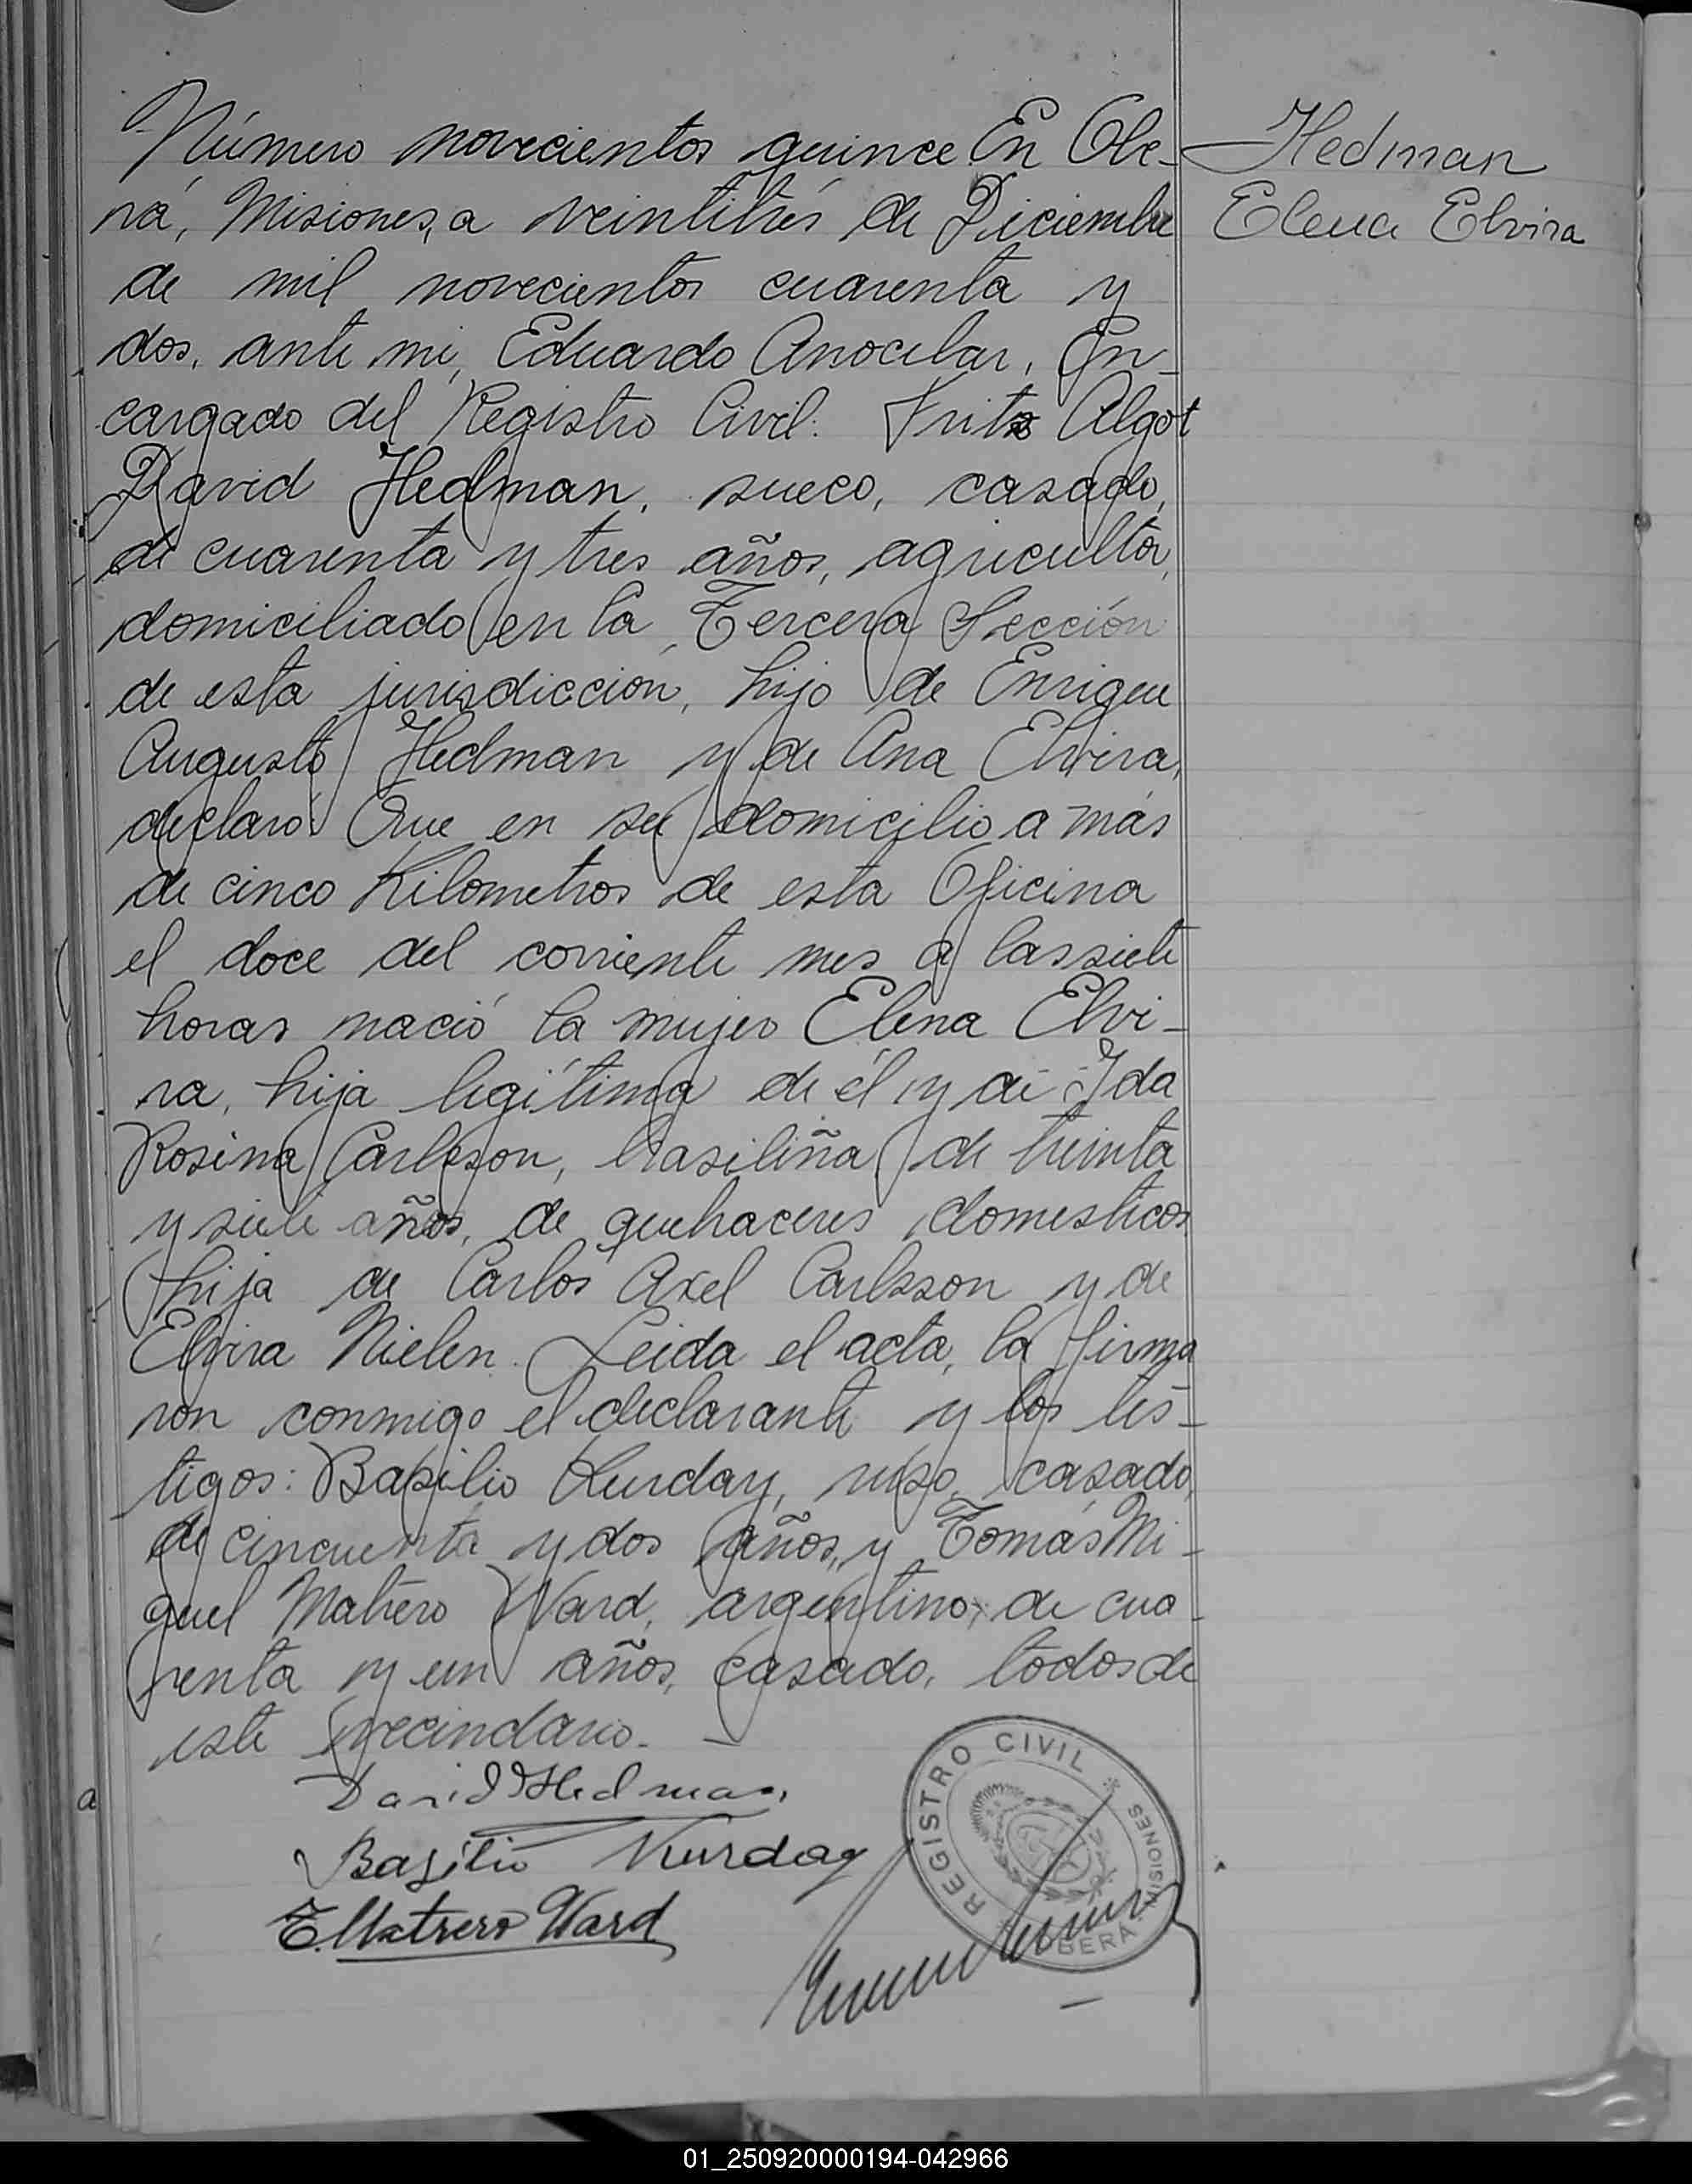 Número novecientos quince En Obe-
rá, Misiones, a veintitrés de Diciembre
de mil novecientos cuarenta y
dos, ante mi, Eduardo Anocibar, En-
cargado del Registro Civil: Fritz Algot
David Hedman, sueco, casado,
de cuarenta y tres años, agricultor,
domiciliado en la Tercera Sección
de esta jurisdicción, hijo de Enrique
Augusto Hedman y de Ana Elvira,
declaró: Que en su domicilio a más
de cinco Kilometros de esta Oficina
el doce del corriente mes a las siete
horas nació la mujer Elena Elvi-
ra, hija legítima de él y de Ida
Rosina Carlsson, brasiliña, de treinta
y siete años, de quehaceres domesticos,
hija de Carlos Axel Carlsson y de
Elvira Nielen. Leida el acta, la firma
ron conmigo el declarante y los tes-
tigos: Basilio Kurday, ruso, casado,
de cincuenta y dos años, y Tomás Mi-
guel Matrero Ward, argentino, de cua-
renta y un años, casado, todos de
este vecindario.
David Hedman
Basilio Kurday
T. Matrero Ward
Hedman
Elena Elvira
REGISTRO CIVIL
OBERA MISIONES
a
01_250920000194-042966